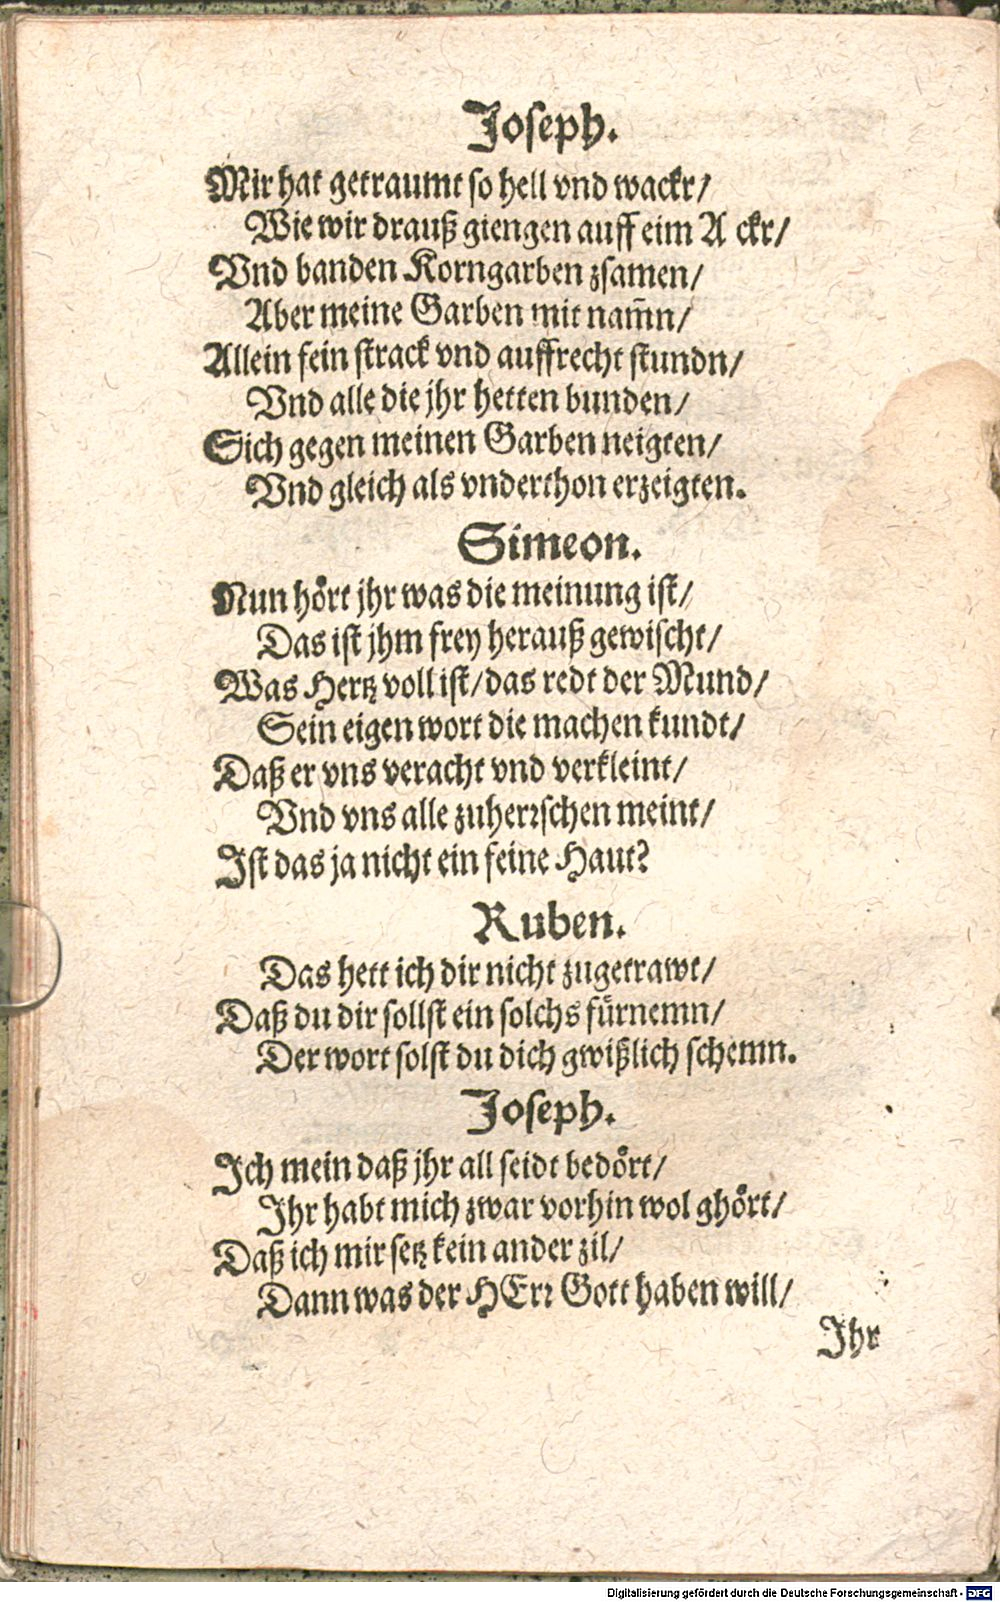 Joseph.
Mir hat getraumt so hell vnd wackr/
Wie wir drauß giengen auff eim A ckr/
Vnd banden Korngarben zsamen/
Aber meine Garben mit nam̃n/
Allein fein strack vnd auffrecht stundn/
Vnd alle die jhr hetten bunden/
Sich gegen meinen Garben neigten/
Vnd gleich als vnderthon erzeigten.
Simeon.
Nun hoͤrt jhr was die meinung ist/
Das ist jhm frey herauß gewischt/
Was Hertz voll ist/das redt der Mund/
Sein eigen wort die machen kundt/
Daß er vns veracht vnd verkleint/
Vnd vns alle zuherꝛschen meint/
Ist das ja nicht ein feine Haut?
Ruben.
Das hett ich dir nicht zugetrawt/
Daß du dir sollst ein solchs fuͤrnemn/
Der wort solst du dich gwißlich schemn.
Joseph.
Ich mein daß jhr all seidt bedoͤrt/
Ihr habt mich zwar vorhin wol ghoͤrt/
Daß ich mir setz kein ander zil/
Dann was der HErꝛ Gott haben will/
Ihr
Digitalisierung gefördert durch die Deutsche Forschungsgemeinschaft - DFG